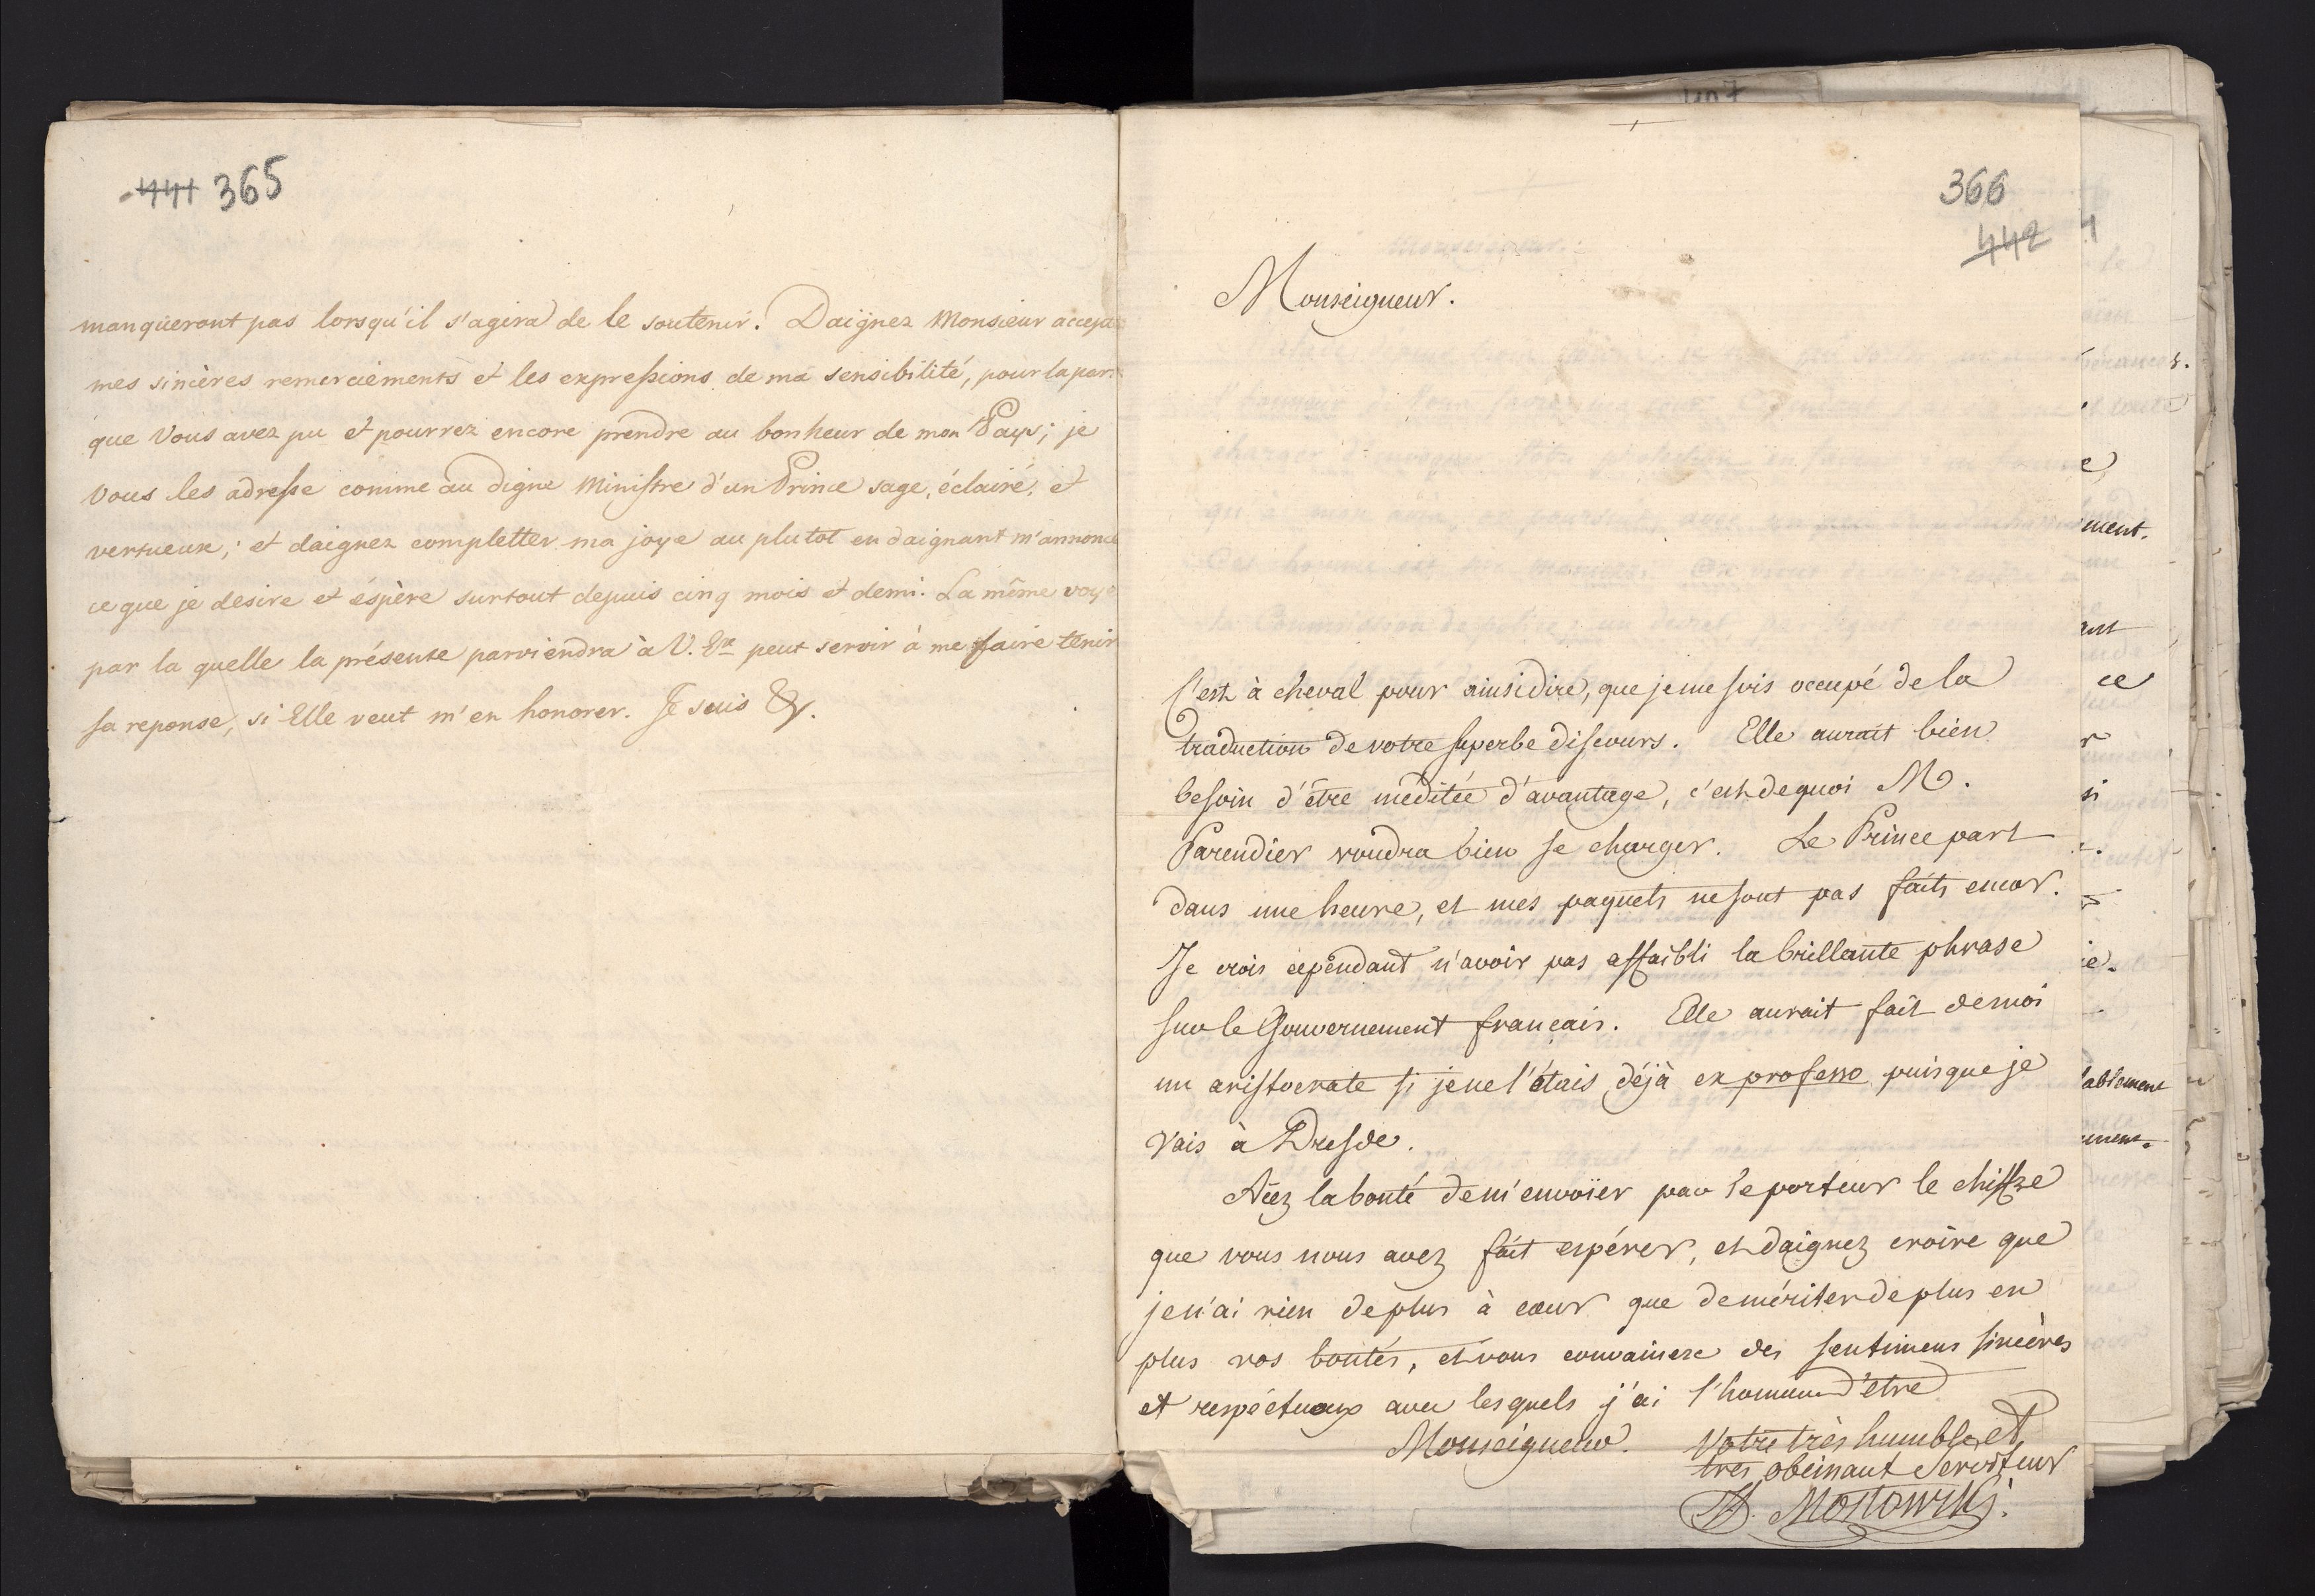 441 365
manqueront pas lorsqu'il s'agira de le soutenir. Daignez Monsieur accep
mes sincères remerciements et les expressions de ma sensibilité, pour la par
que Vous avez pu et pourrez encore prendre au bonheur de mon Pays; je
Vous les adresse comme au digne Ministre d'un Prince sage, éclairé, et
vertueux; et daignez completter ma joye au plutot en daignant m'annonce
ce que je desire et éspère surtout depuis cinq mois et demi. La même voye
par la quelle la présente parviendra à V. Ex peut servir à me faire tenir
sa reponse, si Elle veut m'en honorer. Je suis &.
366
442
Monseigneur.
C'est à cheval pour ainsi dire, que je me suis occupé de la
traduction de votre superbe discours. Elle aurait bien
besoin d'être méditée d'avantage, c'est de quoi M.
Parendier voudra bien se charger. Le Prince part
dans une heure, et mes paquets ne sont pas faits encor.
Je crois cependant n'avoir pas affaibli la brillante phrase
sur le Gouvernement français. Elle aurait fait de moi
un aristocrate si je ne l'étais déjà ex professo puisque je
vais à Dresde.
Aiez la bonté de m'envoïer par le porteur le chiffre
que vous nous avez fait espérer, et daignez croire que
je n'ai rien de plus à cœur que de mériter de plus en
plus vos bontés, et vous convaincre des sentimens sincères
et respéctueux avec lesquels j'ai l'honneur d'etre
Monseigneur. Votre très humble et
très obeissant Serviteur
Mostowski.
ment.
ce
si
lablement